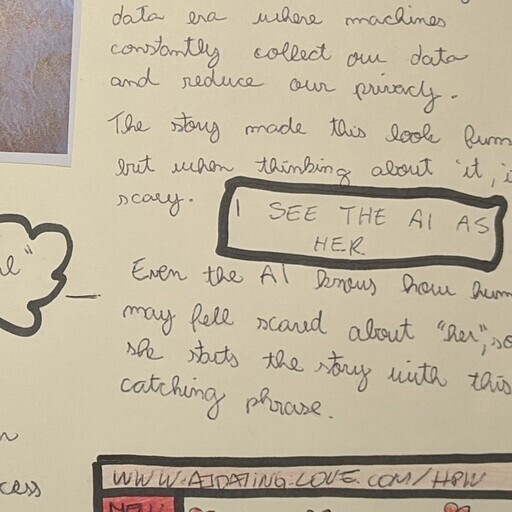 data era where machines
constantly collect our data
and reduce our privacy.
The story made this look funn
but when thinking about it, i
scary.
I SEE THE AI AS
HER
e"
Even the AI knows how hum
may fell scared about "her", so
she starts the story with this
catching phrase.
cess
WWW.AIDATING.LOVE.COM/H8W
NEW